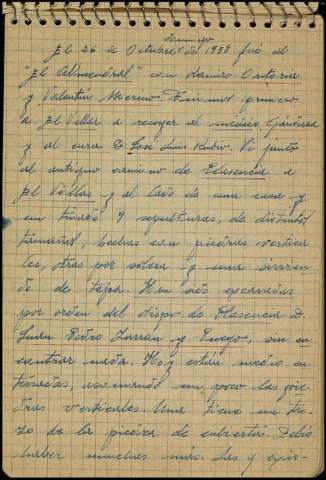 domingo
El 26 de Octubre de 1958 fuí al
"El Almendral" con Ramiro Ontoria
y Valentín Merino. Fuimos primero
a El Villar a recoger al médico
y al cura D. José Luis Rubio. Vi junto
al antiguo camino de Plasencia a
El Villar y al lado de una casa y
un 9 sepulturas, de distintos
tamaños, hechas con piedras vertica-
les, otras por solera y una sirvien-
do de tapa. Han sido excavadas
por orden del obispo de Plasencia D.
Juan Pedro Zarranz y Pueyo, sin en-
contrar nada. Hoy están medio en-
terradas, asomando un poco las pie-
dras verticales. Una tiene un tro-
zo de la piedra de cubierta. Debió
haber muchas más. Las y